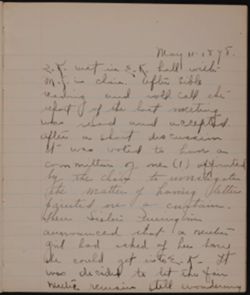 May 11. 1878.
E.K. met in E.K. hall with
M.J. in chair. After Bible
reading and roll call the
report of the last meeting
was read and accepted
after a short discussion
It was voted to have a
committee of one (1) appointed
by the chair to investigate
the matter of having letters
printed on a curtain.
announced that a
girl had asked of her how
she could get into E.K. It
was decided to let the fair
remain still wondering